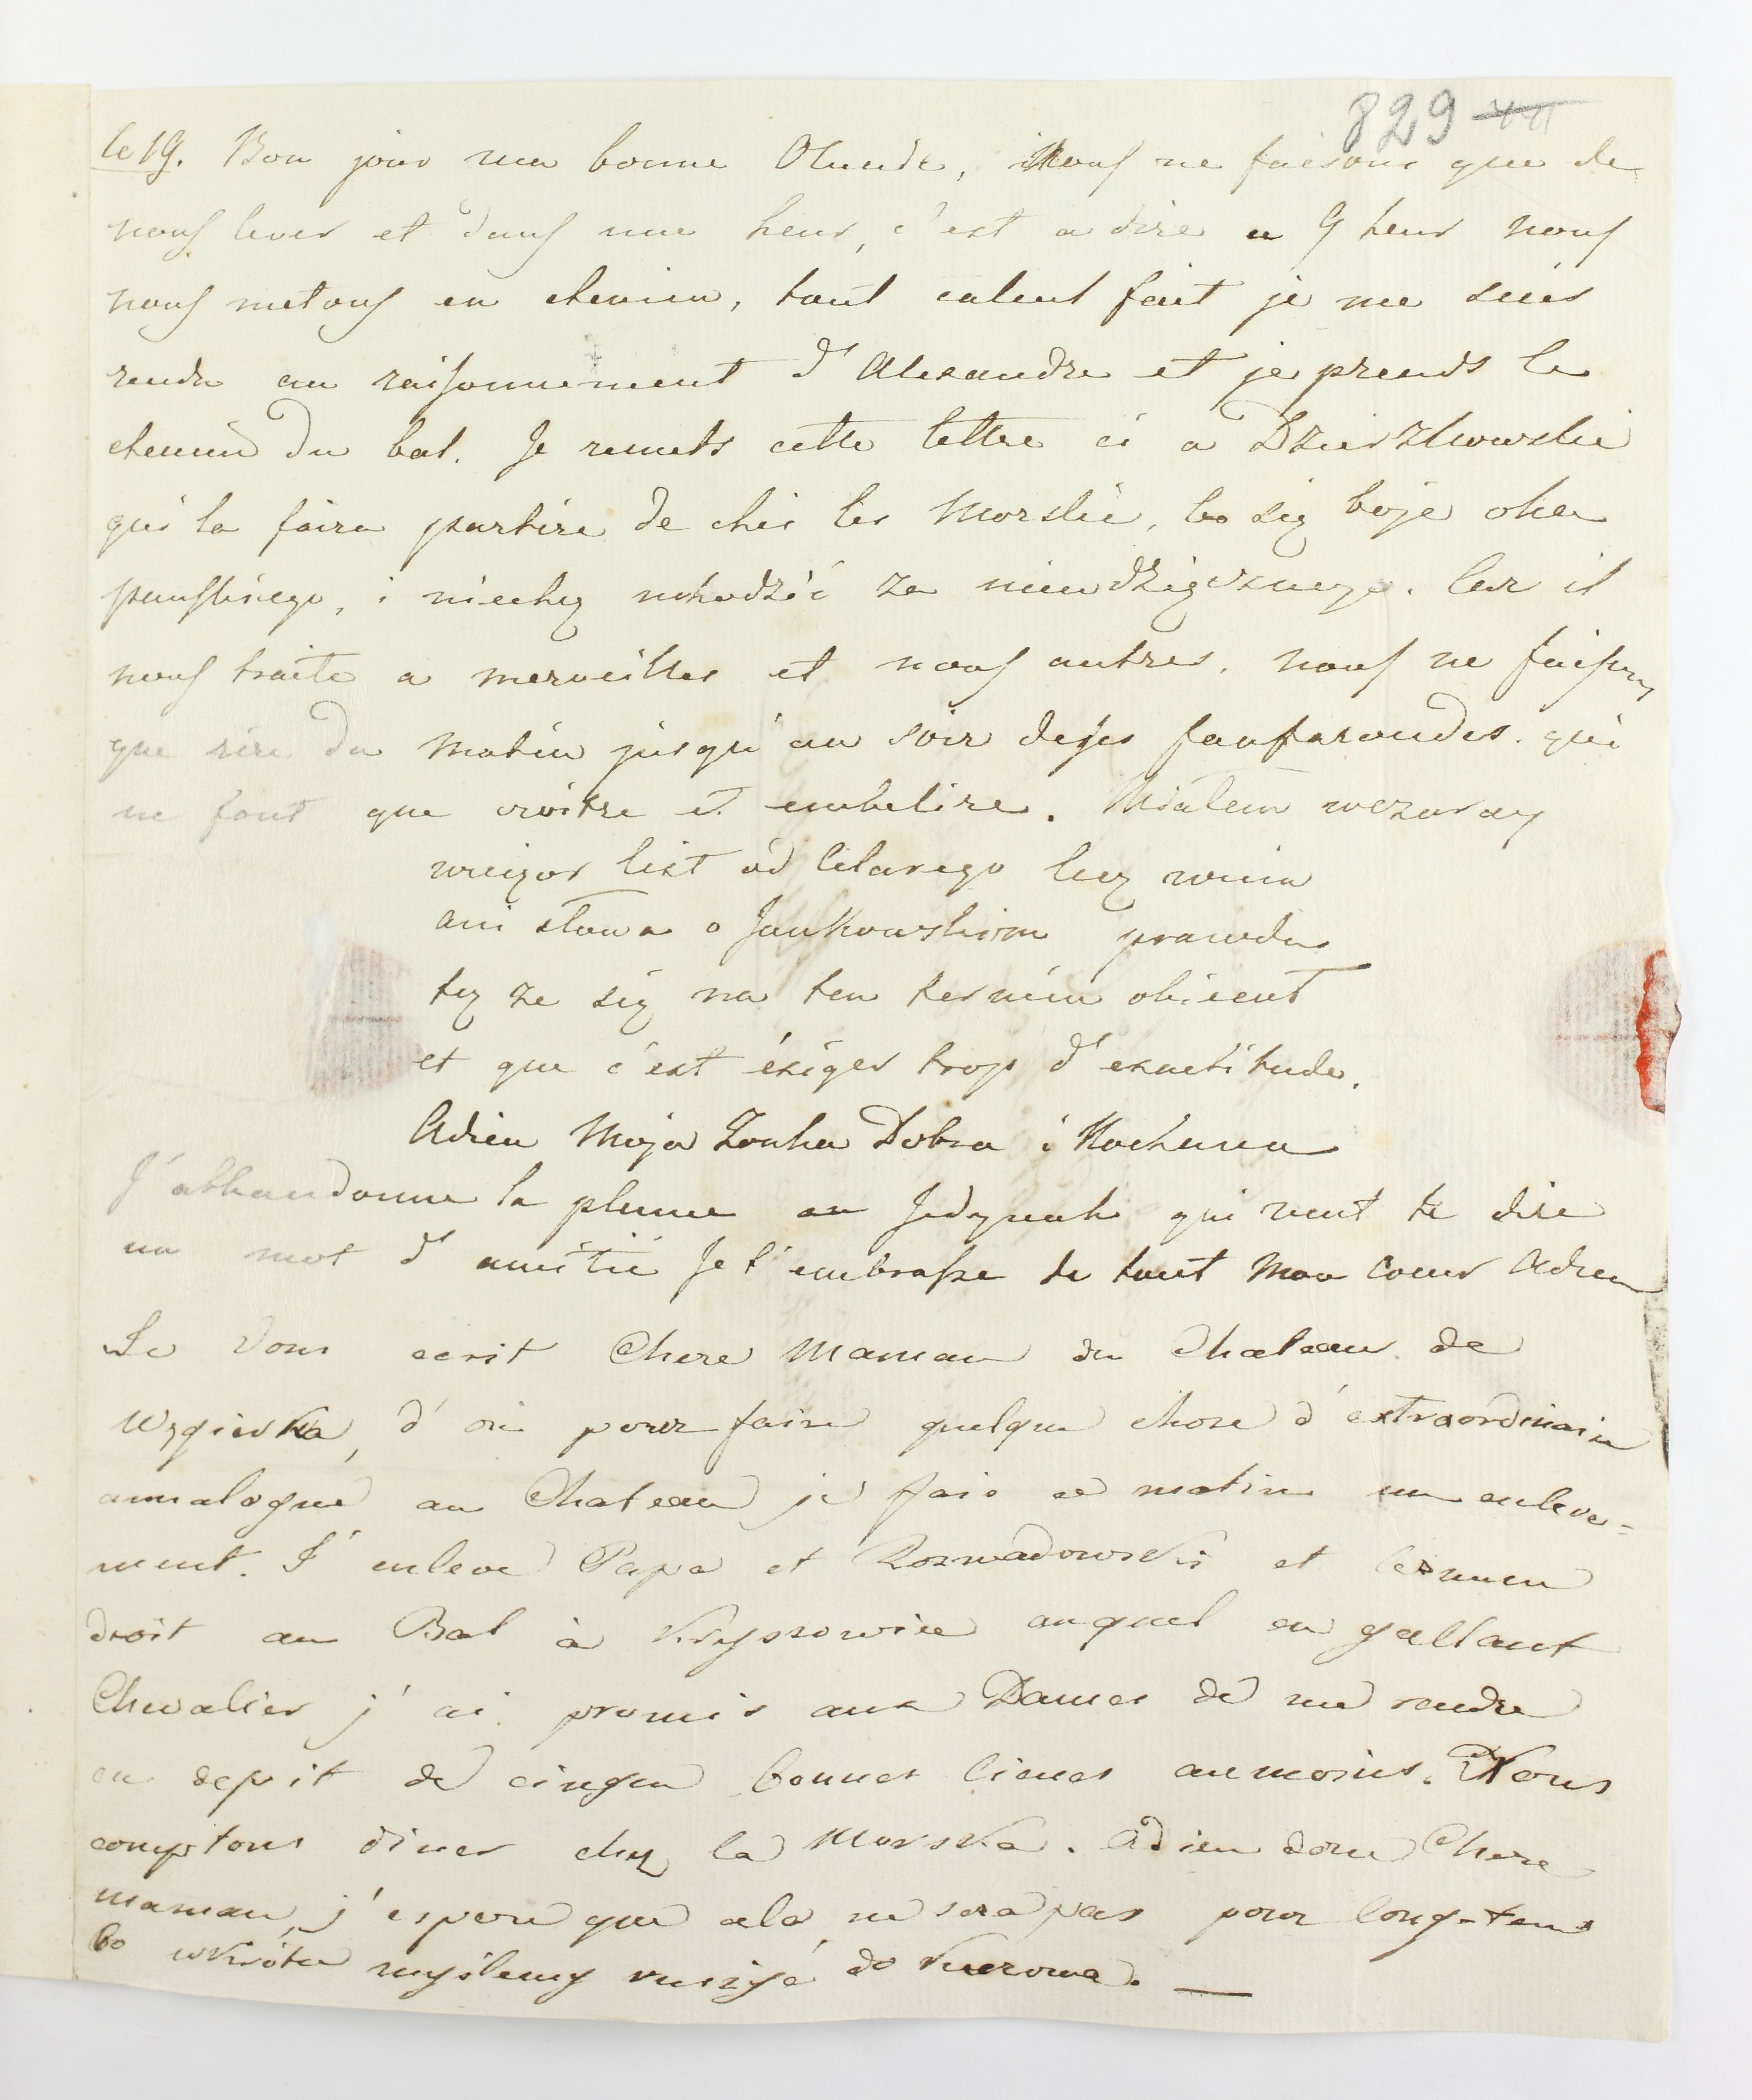 829
le 19. Bon jour ma bonne Olunde, Nous ne faisons que de
nous lever et dans une heur, c'est a dire a 9 heur nous
nous metons en chemin, tout calcul fait je me suis
rendu au raisonnement d'Alexandre et je prends le
chemin du bal. Je remets cette lettre ci a Dzierzkowski
qui la faira partire de chés les Morski, bo się boje oka
pańskiego, i niechcę uchodzić za niewdzięcznego. Car il
nous traite a merveilles et nous autres, nous ne faisons
que rire du matin jusqu'au soir de ses fanfaronades. qui
ne font que croitre et embelire. Miałem wczoray
wieczor list od lecz niema
ani słowa o Jankowskiem prawda
też ze się na ten termin obiecuł
et que c'est éxiger trop d'exactitude.
Adieu Moja Zonka Dobra i Kochana
J'abbandonne la plume au Jedynak qui veut te dire
un mot d'amitié Je t'embrasse de tout Mon Coeur Adieu
Je Vous ecrit Chere Maman du Chateau de
d'où pour faire quelque chose d'extraordinaire
annalogue au Chateau je fais ce matin un enleve-
ment. J'enleve Papa et Rozwadowski et les mene
droit au Bal à Krysowice auquel en gallant
Chevalier j'ai promis aux Dames de me rendre
en depit de cinque bonnes lieues aumoins. Nous
comptons diner chez la Morska. Adieu donc Chere
maman, j'espere que cela ne sera pas pour long-tems
bo wkrótce myślemy ruszyć do Kurowa. —